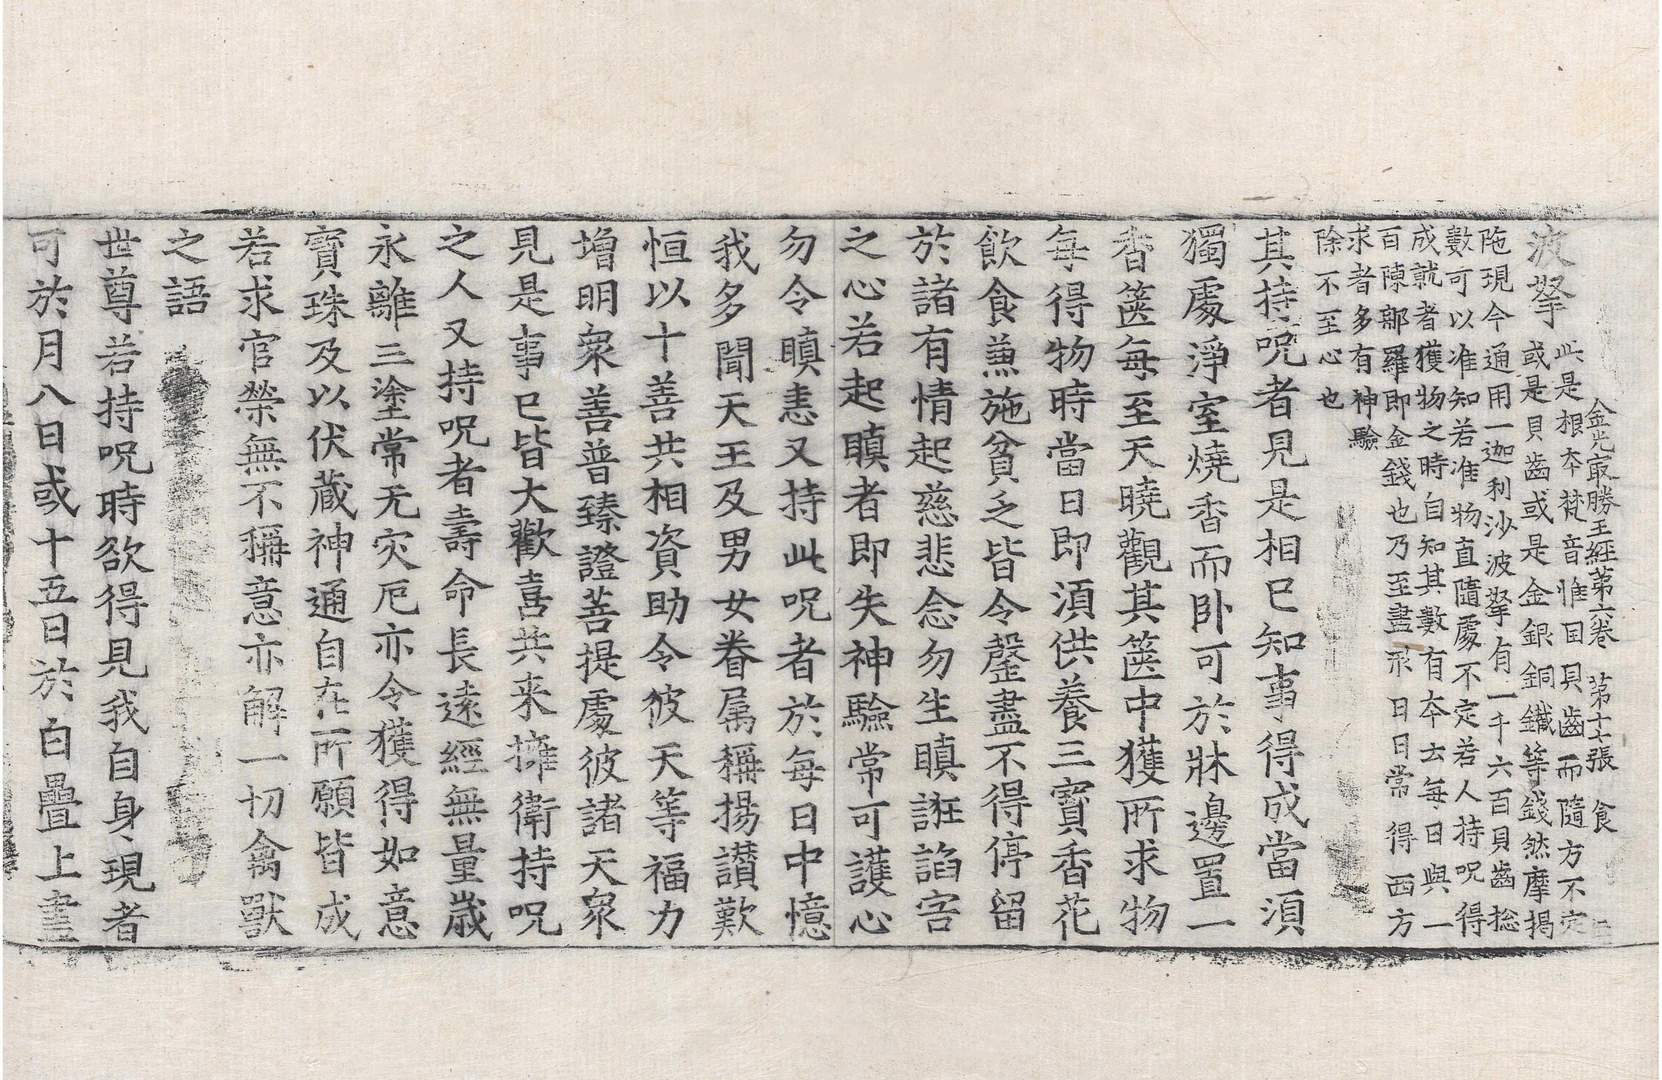 金光冣勝王經苐六卷 苐十七張 食
波拏
此是根夲梵音惟目貝齒而隨方不定
或是貝齒或是金銀銅鐵等錢然摩揭
陁現今通用一迦利沙波拏有一千六百貝齒捴
數可以准知若准物直隨處不定若人持呪得
成就者獲物之時自知其數有夲云每日與一
百陳那羅即金錢也乃至盡形日日常得西方
求者多有神驗
除不至心也
其持呪者見是相已知事得成當湏
獨處淨室燒香而卧可於牀邊置一
香篋每至天曉觀其篋中獲所求物
每得物時當日即湏供養三寶香花
飲食兼施貧乏皆令罄盡不得停留
於諸有情起慈悲念勿生瞋誑諂害
之心若起瞋者即失神驗常可護心
勿令瞋恚又持此呪者於每日中憶
我多聞天王及男女眷属稱揚讃歎
恒以十善共相資助令彼天等福力
增明衆善普臻證菩提處彼諸天衆
見是事已皆大歡喜共来擁衛持呪
之人又持呪者壽命長遠經無量歲
永離三塗常无灾厄亦令獲得如意
寶珠及以伏藏神通自在所願皆成
若求官榮無不稱意亦解一切禽獸
之語
世尊若持呪時欲得見我自身現者
可於月八日或十五日於白疊上畫